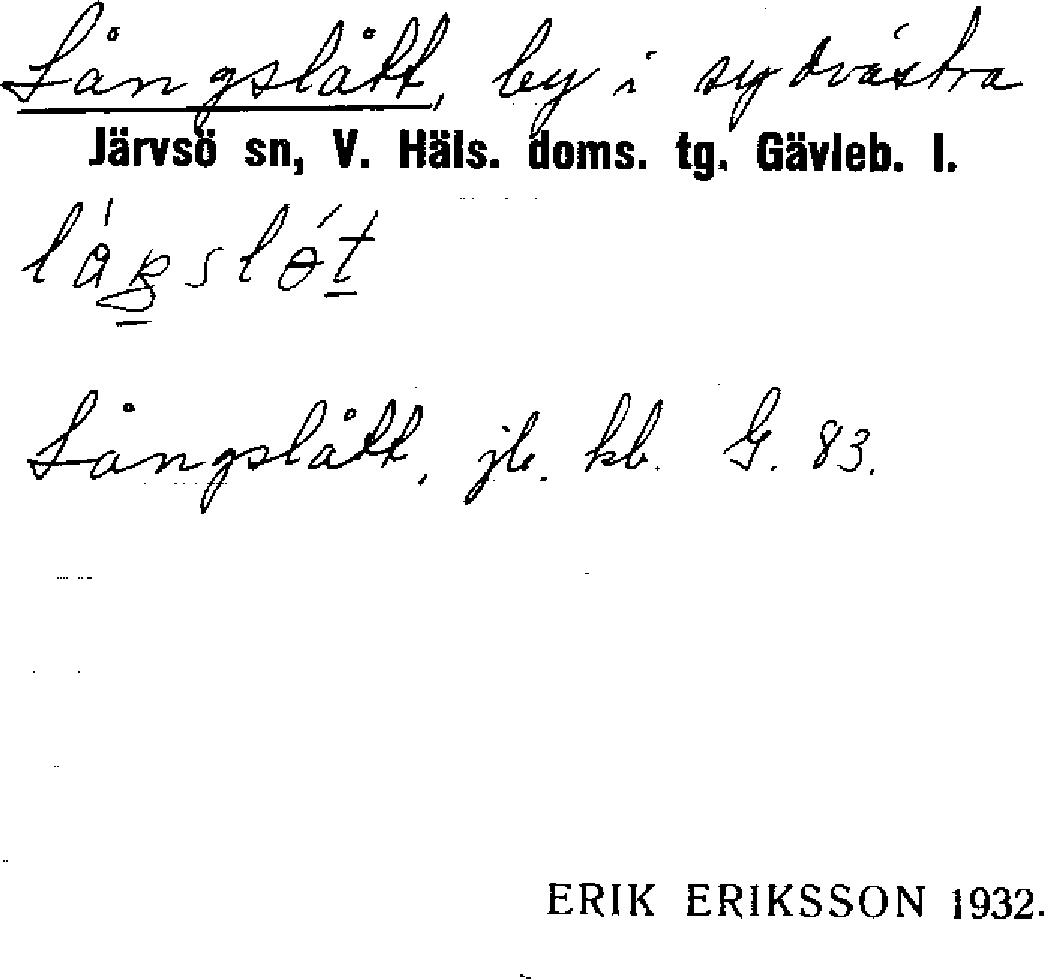 Långslått, by i sydvästra
Järvsö sn, V. Häls. doms. tg. Gävleb. l.
Långslått, jb. kb. G. 83.
ERIK ERIKSSON 1932.